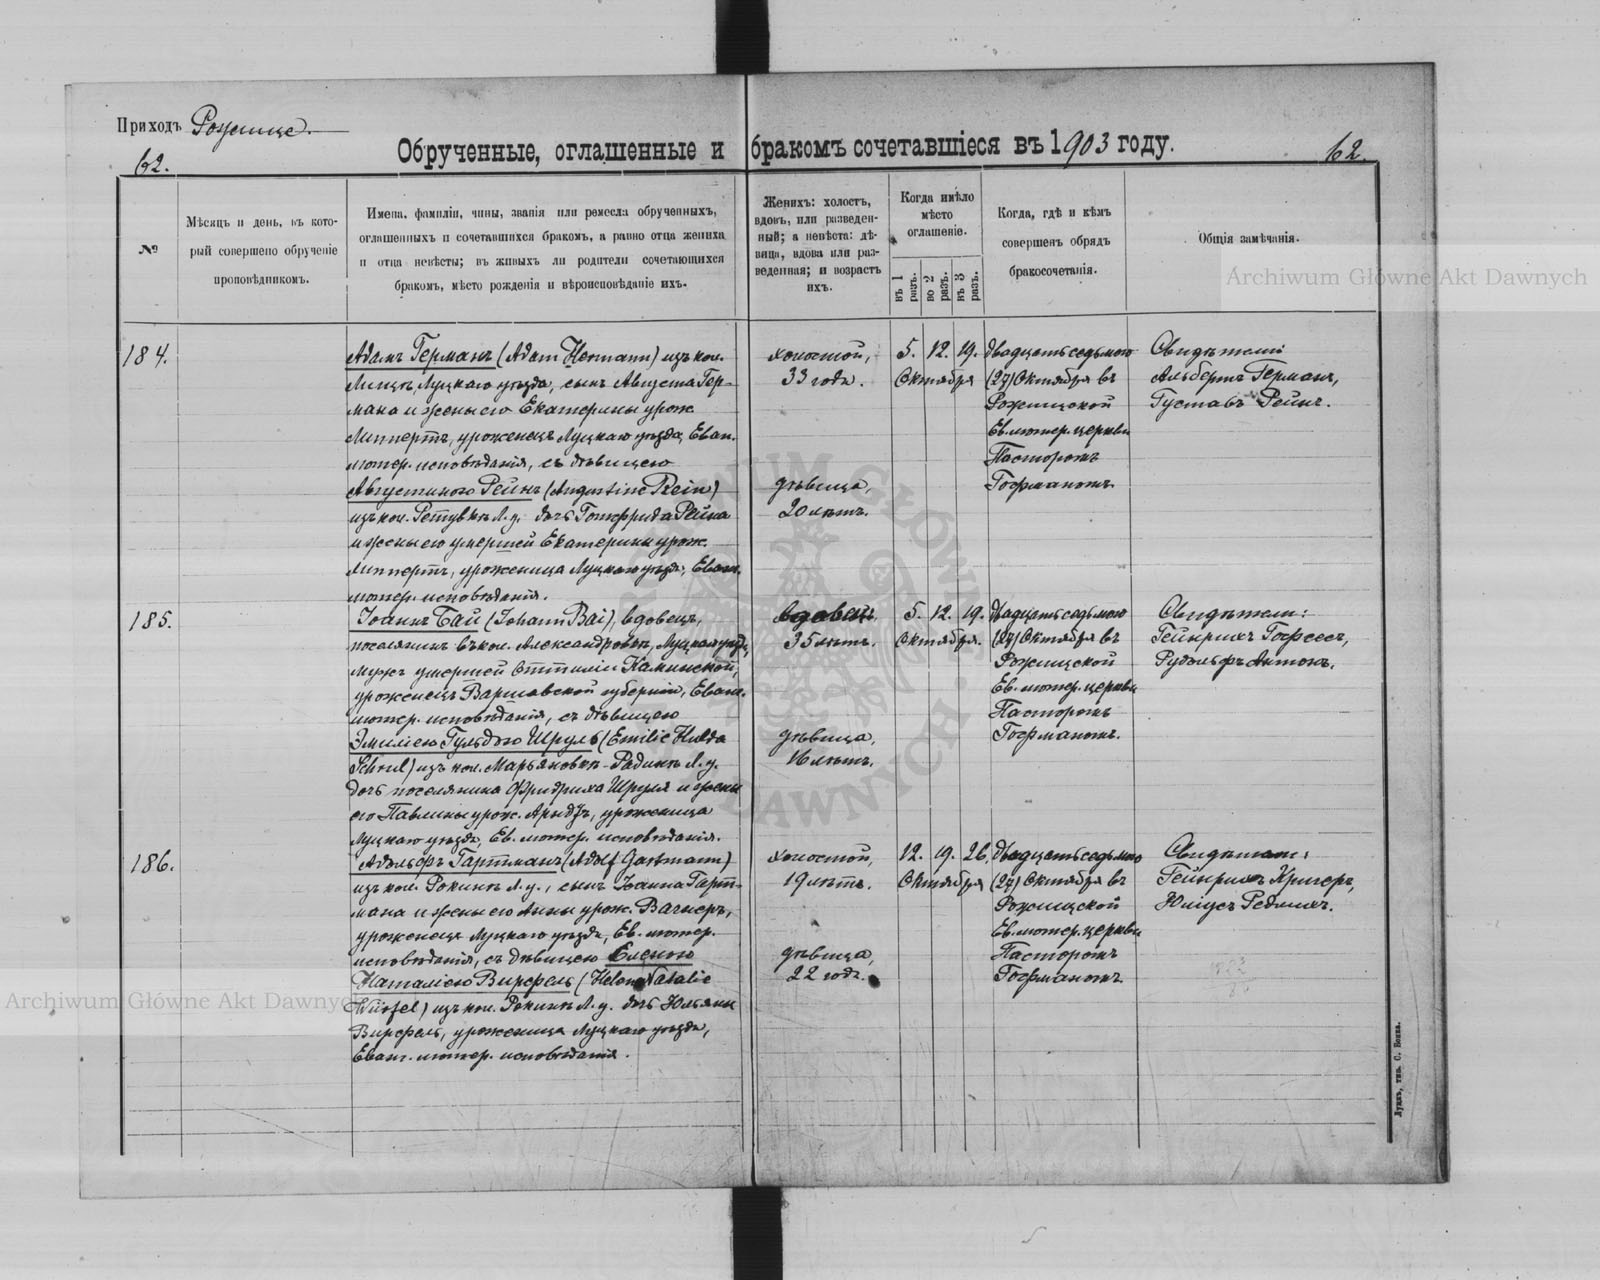 Приходъ Рожище.
62.
Обрученные, оглашенные и бракомъ сочетавшіеся въ 1903 году.
62.
№
Мѣсяцъ и день, въ кото-
рый совершено обрученіе
проповѣдникомъ.
Имена, фамиліи, чины, званія или ремесла обрученныхъ,
оглашенныхъ и сочетавшихся бракомъ, а равно отца жениха
и отца невѣсты; въ живыхъ ли родители сочетающихся
бракомъ, мѣсто рожденія и вѣроисповѣданіе ихъ.
Женихъ: холостъ,
вдовъ, или разведен-
ный; а невѣста: дѣ-
вица, вдова или раз-
веденная; и возрастъ
ихъ.
Когда имѣло
мѣсто
оглашеніе.
въ 1 разъ.
во 2 разъ.
въ 3 разъ.
Когда, гдѣ и кѣмъ
совершенъ обрядъ
бракосочетанія.
Общія замѣчанія.
184.
Адамъ Германъ (Adam Hermann) изъ кол.
Луцкаго уѣзда, сынъ Августа Гер-
мана и жены его Екатерины урож.
Липпертъ, уроженецъ Луцкаго уѣзда, Еван.
лютер. исповѣданія, съ дѣвицею
Августиною Рейнъ (Augustine Rein)
изъ кол. Л. у. дочь Готфрида Рейна
и жены его умершей Екатерины урож.
Липпертъ, уроженица Луцкаго уѣзда, Еванг.
лютер. исповѣданія.
холостой,
33 года.
дѣвица,
20 лѣтъ.
5. 12. 19.
Октября
двадцать седьмого
(27) Октября въ
Рожищской
Ев. лютер. церкви
Пасторомъ
Гофманомъ.
Свидѣтели
Альбертъ Германъ,
Густавъ Рейнъ.
185.
Іоаннъ Бай (Johann Bai), вдовецъ,
поселянинъ въ кол. Александровкѣ, Луцкаго уѣзда,
мужъ умершей Оттиліи Каминской,
уроженецъ Варшавской губерніи, Еванг.
лютер. исповѣданія, съ дѣвицею
Эмиліею Гульдою Шруль (Emilie Hulda
Schrul) изъ кол. Марьяновки Л. у.
дочь поселянина Фридриха Шруля и жены
его Павлины урож. Арндтъ, уроженица
Луцкаго уѣзда, Ев. лютер. исповѣданія.
вдовецъ,
35 лѣтъ.
дѣвица,
16 лѣтъ.
5. 12. 19.
Октября.
двадцать седьмого
(27) Октября въ
Рожищской
Ев. лютер. церкви
Пасторомъ
Гофманомъ.
Свидѣтели:
Гейнрихъ
Рудольфъ Антонъ.
186.
Адольфъ Гартманъ (Adolf Gartmann)
изъ кол. Рокини Л. у., сынъ Іоанна Гарт-
мана и жены его Анны урож. Вагнеръ,
уроженецъ Луцкаго уѣзда, Ев. лютер.
исповѣданія, съ дѣвицею Еленою
Наталіею Вирфель (Helene Natalie
Würfel) изъ кол. Рокини Л. у. дочь Юльяны
Вирфель, уроженица Луцкаго уѣзда,
Еванг. лютер. исповѣданія.
холостой,
19 лѣтъ.
дѣвица,
22 года.
12. 19. 26.
Октября
двадцать седьмого
(27) Октября въ
Рожищской
Ев. лютер. церкви
Пасторомъ
Гофманомъ.
Свидѣтели:
Гейнрихъ Кригеръ,
Юліусъ
Луцкъ, тип. С. Бонка.
Archiwum Główne Akt Dawnych
Archiwum Główne Akt Dawnych